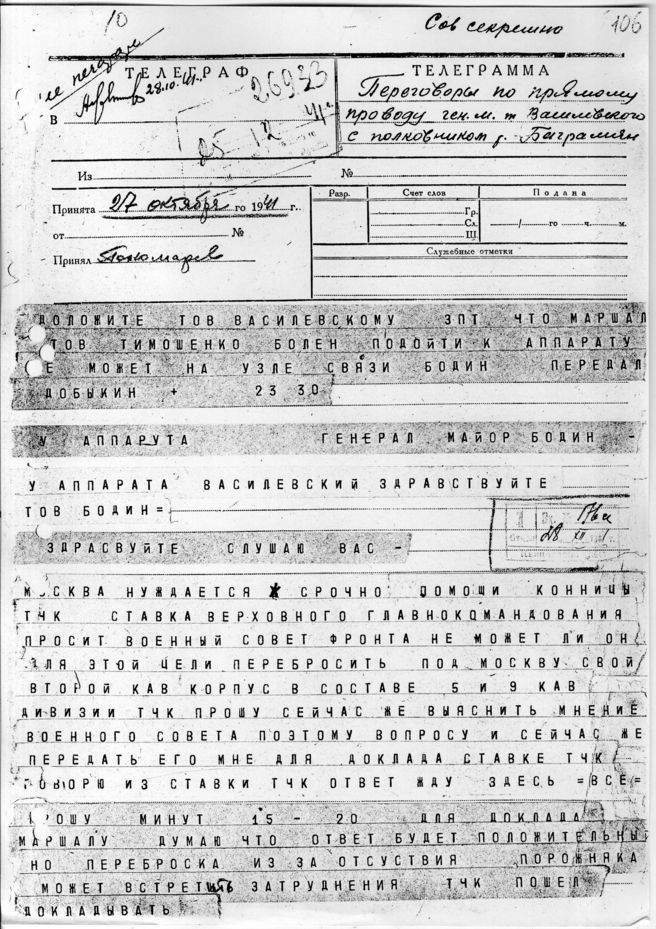 10
Сов секретно
106
ТЕЛЕГРАФ
28.10.41г.
26933
25 12
В
ТЕЛЕГРАММА
Переговоры по прямому
проводу ген.м. т Василевского
с полковником г. Баграмян
Из
№
Принята 27 октября го 1941 г.
от № 
Принял Пономарев
Разр.
Счет слов
Гр.
Сл.
Ш.
Подана
/ го ч. м.
Служебные отметки
ДОЛОЖИТЕ ТОВ ВАСИЛЕВСКОМУ ЗПТ ЧТО МАРШАЛ
ТОВ ТИМОШЕНКО БОЛЕН ПОДОЙТИ К АППАРАТУ
НЕ МОЖЕТ НА УЗЛЕ СВЯЗИ БОДИН ПЕРЕДАЛ
ДОБЫКИН + 23 30
У АППАРУТА ГЕНЕРАЛ МАЙОР БОДИН -
У АППАРАТА ВАСИЛЕВСКИЙ ЗДРАВСТВУЙТЕ
ТОВ БОДИН=
28 XII
ЗДРАСВУЙТЕ СЛУШАЮ ВАС -
МОСКВА НУЖДАЕТСЯ СРОЧНО ПОМОЩИ КОННИЦЫ
ТЧК СТАВКА ВЕРХОВНОГО ГЛАВНОКОМАНДОВАНИЯ
ПРОСИТ ВОЕННЫЙ СОВЕТ ФРОНТА НЕ МОЖЕТ ЛИ ОН
ДЛЯ ЭТОЙ ЦЕЛИ ПЕРЕБРОСИТЬ ПОД МОСКВУ СВОЙ
ВТОРОЙ КАВ КОРПУС В СОСТАВЕ 5 И 9 КАВ
ДИВИЗИИ ТЧК ПРОШУ СЕЙЧАС ЖЕ ВЫЯСНИТЬ МНЕНИЕ
ВОЕННОГО СОВЕТА ПОЭТОМУ ВОПРОСУ И СЕЙЧАС ЖЕ
ПЕРЕДАТЬ ЕГО МНЕ ДЛЯ ДОКЛАДА СТАВКЕ ТЧК
ГОВОРЮ ИЗ СТАВКИ ТЧК ОТВЕТ ЖДУ ЗДЕСЬ =ВСЕ=
ПРОШУ МИНУТ 15 - 20 ДЛЯ ДОКЛАДА
МАРШАЛУ ДУМАЮ ЧТО ОТВЕТ БУДЕТ ПОЛОЖИТЕЛЬНЫЙ
НО ПЕРЕБРОСКА ИЗ ЗА ОТСУСТВИЯ ПОРОЖНЯКА
МОЖЕТ ВСТРЕТИТЬ ЗАТРУДНЕНИЯ ТЧК ПОШЕЛ
ДОКЛАДЫВАТЬ